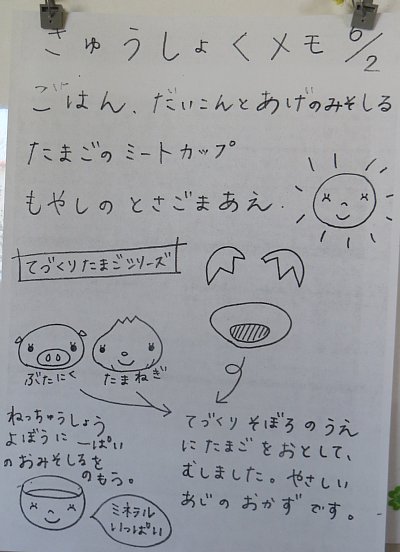 きゅうしょくメモ 6/2
ごはん、だいこんとあげのみそしる
たまごのミートカップ
もやしのとさごまあえ.
てづくりたまごシリーズ
ぶたにく
たまねぎ
ねっちゅうしょう
よぼうに一ぱい
のおみそしるを
のもう。
ミネラル
いっぱい
てづくりそぼろのうえ
にたまごをおとして、
むしました。やさしい
あじのおかずです。